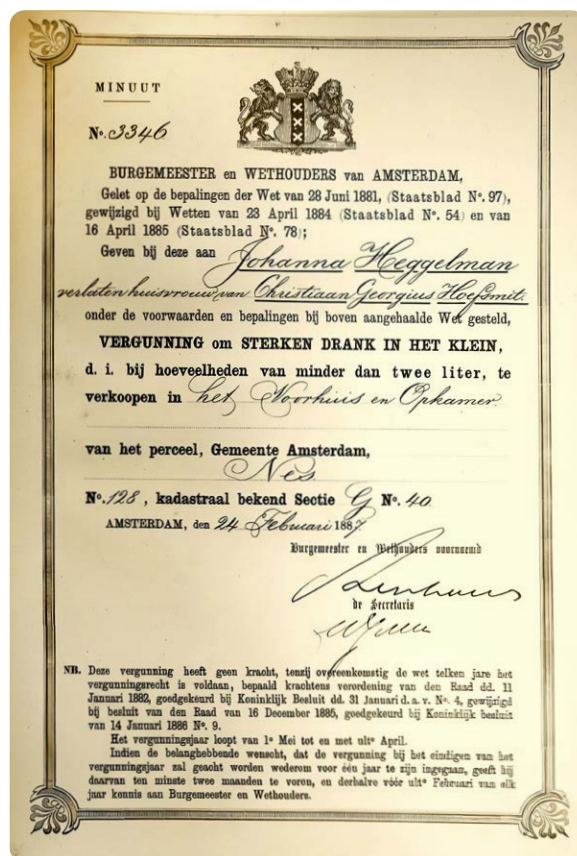 MINUUT
No. 3346
BURGEMEESTER en WETHOUDERS van AMSTERDAM,
Gelet op de bepalingen der Wet van 28 Juni 1881, (Staatsblad No. 97),
gewijzigd bij Wetten van 23 April 1884 (Staatsblad No. 54) en van
16 April 1885 (Staatsblad No. 78);
Geven bij deze aan Johanna Heggelman
verlaten huisvrouw van Christiaan Georgius Hoefsmit.
onder de voorwaarden en bepalingen bij boven aangehaalde Wet gesteld,
VERGUNNING om STERKEN DRANK IN HET KLEIN,
d. i. bij hoeveelheden van minder dan twee liter, te
verkoopen in het Voorhuis en Opkamer.
van het perceel, Gemeente Amsterdam,
Nes
No. 128, kadastraal bekend Sectie G No. 40
AMSTERDAM, den 24 Februari 1887.
Burgemeester en Wethouders voornoemd
de Secretaris
NB. Deze vergunning heeft geen kracht, tenzij overeenkomstig de wet telken jare het
vergunningsrecht is voldaan, bepaald krachtens verordening van den Raad dd. 11
Januari 1882, goedgekeurd bij Koninklijk Besluit dd. 31 Januari d. a. v. No. 4, gewijzigd
bij besluit van den Raad van 16 December 1885, goedgekeurd bij Koninklijk besluit
van 14 Januari 1886 No. 9.
Het vergunningsjaar loopt van 1e Mei tot en met ulto April.
Indien de belanghebbende wenscht, dat de vergunning bij het eindigen van het
vergunningsjaar zal geacht worden wederom voor één jaar te zijn ingegaan, geeft hij
daarvan ten minste twee maanden te voren, en derhalve vóór ulto Februari van elk
jaar kennis aan Burgemeester en Wethouders.